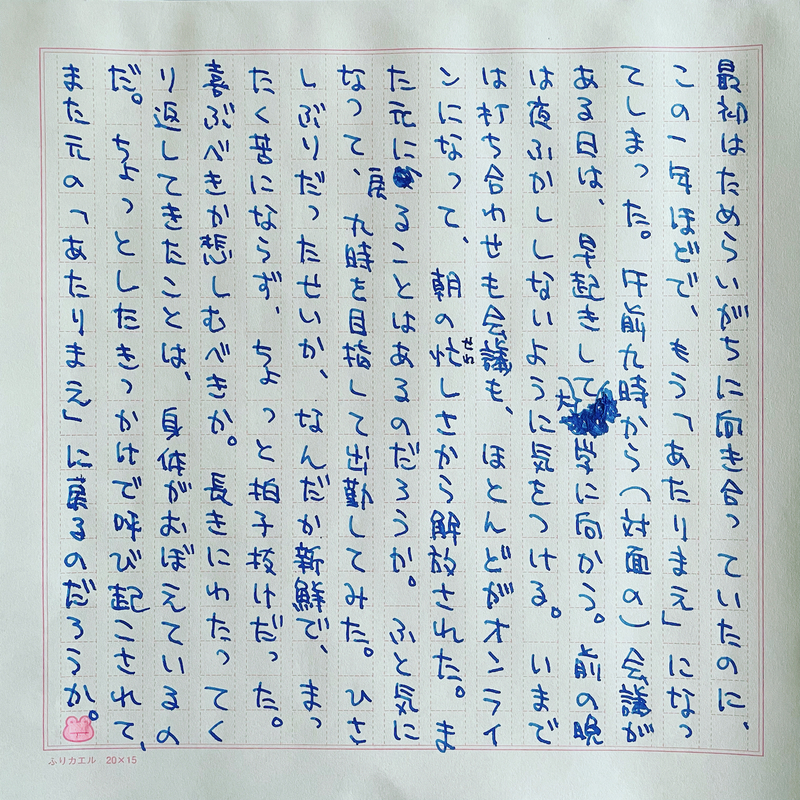 最初はためらいがちに向き合っていたのに、
この一年ほどで、もう「あたりまえ」になっ
てしまった。午前九時から（対面の）会議が
ある日は、早起きして大学に向かう。前の晩
は夜ふかししないように気をつける。いまで
は打ち合わせも会議も、ほとんどがオンライ
ンになって、朝の忙しさから解放された。ま
せわ
た元に戻ることはあるのだろうか。ふと気に
なって、九時を目指して出勤してみた。ひさ
しぶりだったせいか、なんだか新鮮で、まっ
たく苦にならず、ちょっと拍子抜けだった。
喜ぶべきか悲しむべきか。長きにわたってく
り返してきたことは、身体がおぼえているの
だ。ちょっとしたきっかけで呼び起こされて、
また元の「あたりまえ」に戻るのだろうか。
ふりカエル 20×15